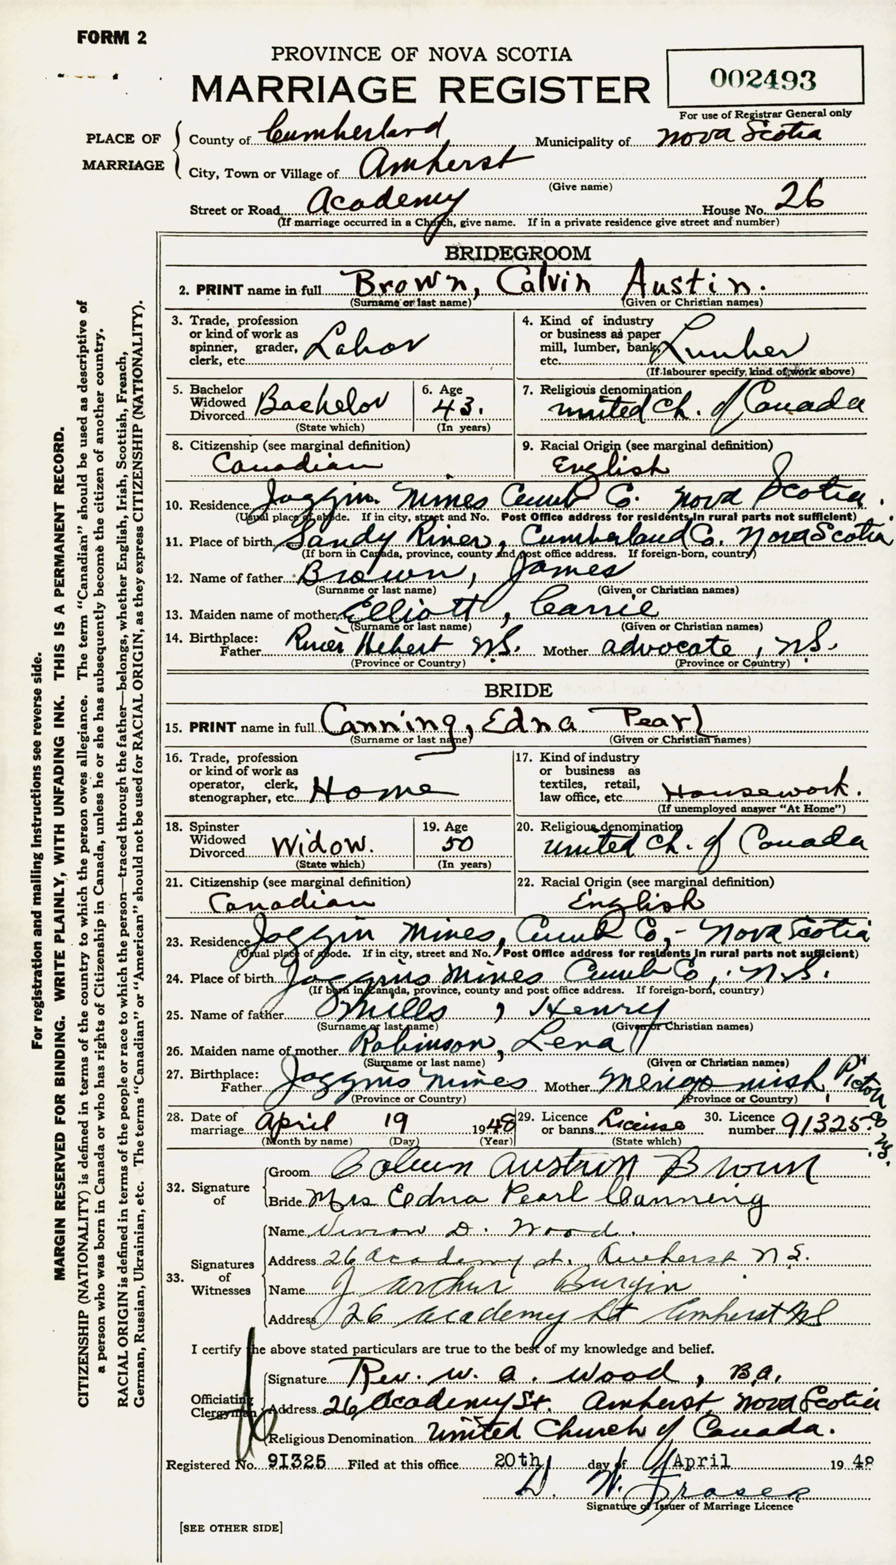 FORM 2
PROVINCE OF NOVA SCOTIA
MARRIAGE REGISTER
002493
For use of Registrar General only
PLACE OF MARRIAGE
County of Cumberland Municipality of Nova Scotia
City, Town or Village of Amherst
(Give name)
Street or Road Academy House No. 26
(If marriage occurred in a Church, give name. If in a private residence give street and number)
BRIDEGROOM
2. PRINT name in full Brown, Calvin Austin.
(Surname or last name) (Given or Christian names)
3. Trade, profession or kind of work as spinner, grader, clerk, etc. Labor
4. Kind of industry or business as paper mill, lumber, bank, etc. Lumber
(If labourer specify, kind of work above)
5. Bachelor Widowed Divorced Bachelor
(State which)
6. Age 43.
(In years)
7. Religious denomination United Ch. of Canada
8. Citizenship (see marginal definition)
Canadian
9. Racial Origin (see marginal definition)
English
10. Residence Joggin Mines Cumb Co. Nova Scotia.
(Usual place of abode. If in city, street and No. Post Office address for residents in rural parts not sufficient)
11. Place of birth Sandy River, Cumberland Co. Nova Scotia
(If born in Canada, province, county and post office address. If foreign-born, country)
12. Name of father Brown, James
(Surname or last name) (Given or Christian names)
13. Maiden name of mother Elliott, Carrie
(Surname or last name) (Given or Christian names)
14. Birthplace: Father River Hebert N.S. Mother advocate, N.S.
(Province or Country) (Province or Country)
BRIDE
15. PRINT name in full Canning, Edna Pearl
(Surname or last name) (Given or Christian names)
16. Trade, profession or kind of work as operator, clerk, stenographer, etc. Home
17. Kind of industry or business as textiles, retail, law office, etc. Housework.
(If unemployed answer "At Home")
18. Spinster Widowed Divorced Widow.
(State which)
19. Age 50
(In years)
20. Religious denomination United Ch. of Canada
21. Citizenship (see marginal definition)
Canadian
22. Racial Origin (see marginal definition)
English
23. Residence Joggin Mines, Cumb Co, - Nova Scotia
(Usual place of abode. If in city, street and No. Post Office address for residents in rural parts not sufficient)
24. Place of birth Joggins Mines Cumb Co, N.S.
(If born in Canada, province, county and post office address. If foreign-born, country)
25. Name of father Mills, Henry
(Surname or last name) (Given or Christian names)
26. Maiden name of mother Robinson, Lena
(Surname or last name) (Given or Christian names)
27. Birthplace: Father Joggins Mines Mother Merigomish Pictou Co N.S.
(Province or Country) (Province or Country)
28. Date of marriage April 19 1948
(Month by name) (Day) (Year)
29. Licence or banns License
(State which)
30. Licence number 91325
32. Signature of
Groom Calvin Austin Brown
Bride Mrs Eedna Pearl Canning
33. Signatures of Witnesses
Name Vivian D. Wood.
Address 26 Academy st. Amherst N.S.
Name J Arthur Burgin
Address 26 Academy St Amherst NS
I certify the above stated particulars are true to the best of my knowledge and belief.
Officiating Clergyman
Signature Rev. W. A. Wood, B.A.
Address 26 Academy St. Amherst Nova Scotia
Religious Denomination United Church of Canada.
Registered No. 91325 Filed at this office 20th day of April 1948
D. W. Fraser
Signature of Issuer of Marriage Licence
[SEE OTHER SIDE]
For registration and mailing instructions see reverse side.
MARGIN RESERVED FOR BINDING. WRITE PLAINLY, WITH UNFADING INK. THIS IS A PERMANENT RECORD.
CITIZENSHIP (NATIONALITY) is defined in terms of the country to which the person owes allegiance. The term "Canadian" should be used as descriptive of
a person who was born in Canada or who has rights of Citizenship in Canada, unless he or she has subsequently become the citizen of another country.
RACIAL ORIGIN is defined in terms of the people or race to which the person—traced through the father—belongs, whether English, Irish, Scottish, French,
German, Russian, Ukrainian, etc. The terms "Canadian" or "American" should not be used for RACIAL ORIGIN, as they express CITIZENSHIP (NATIONALITY).